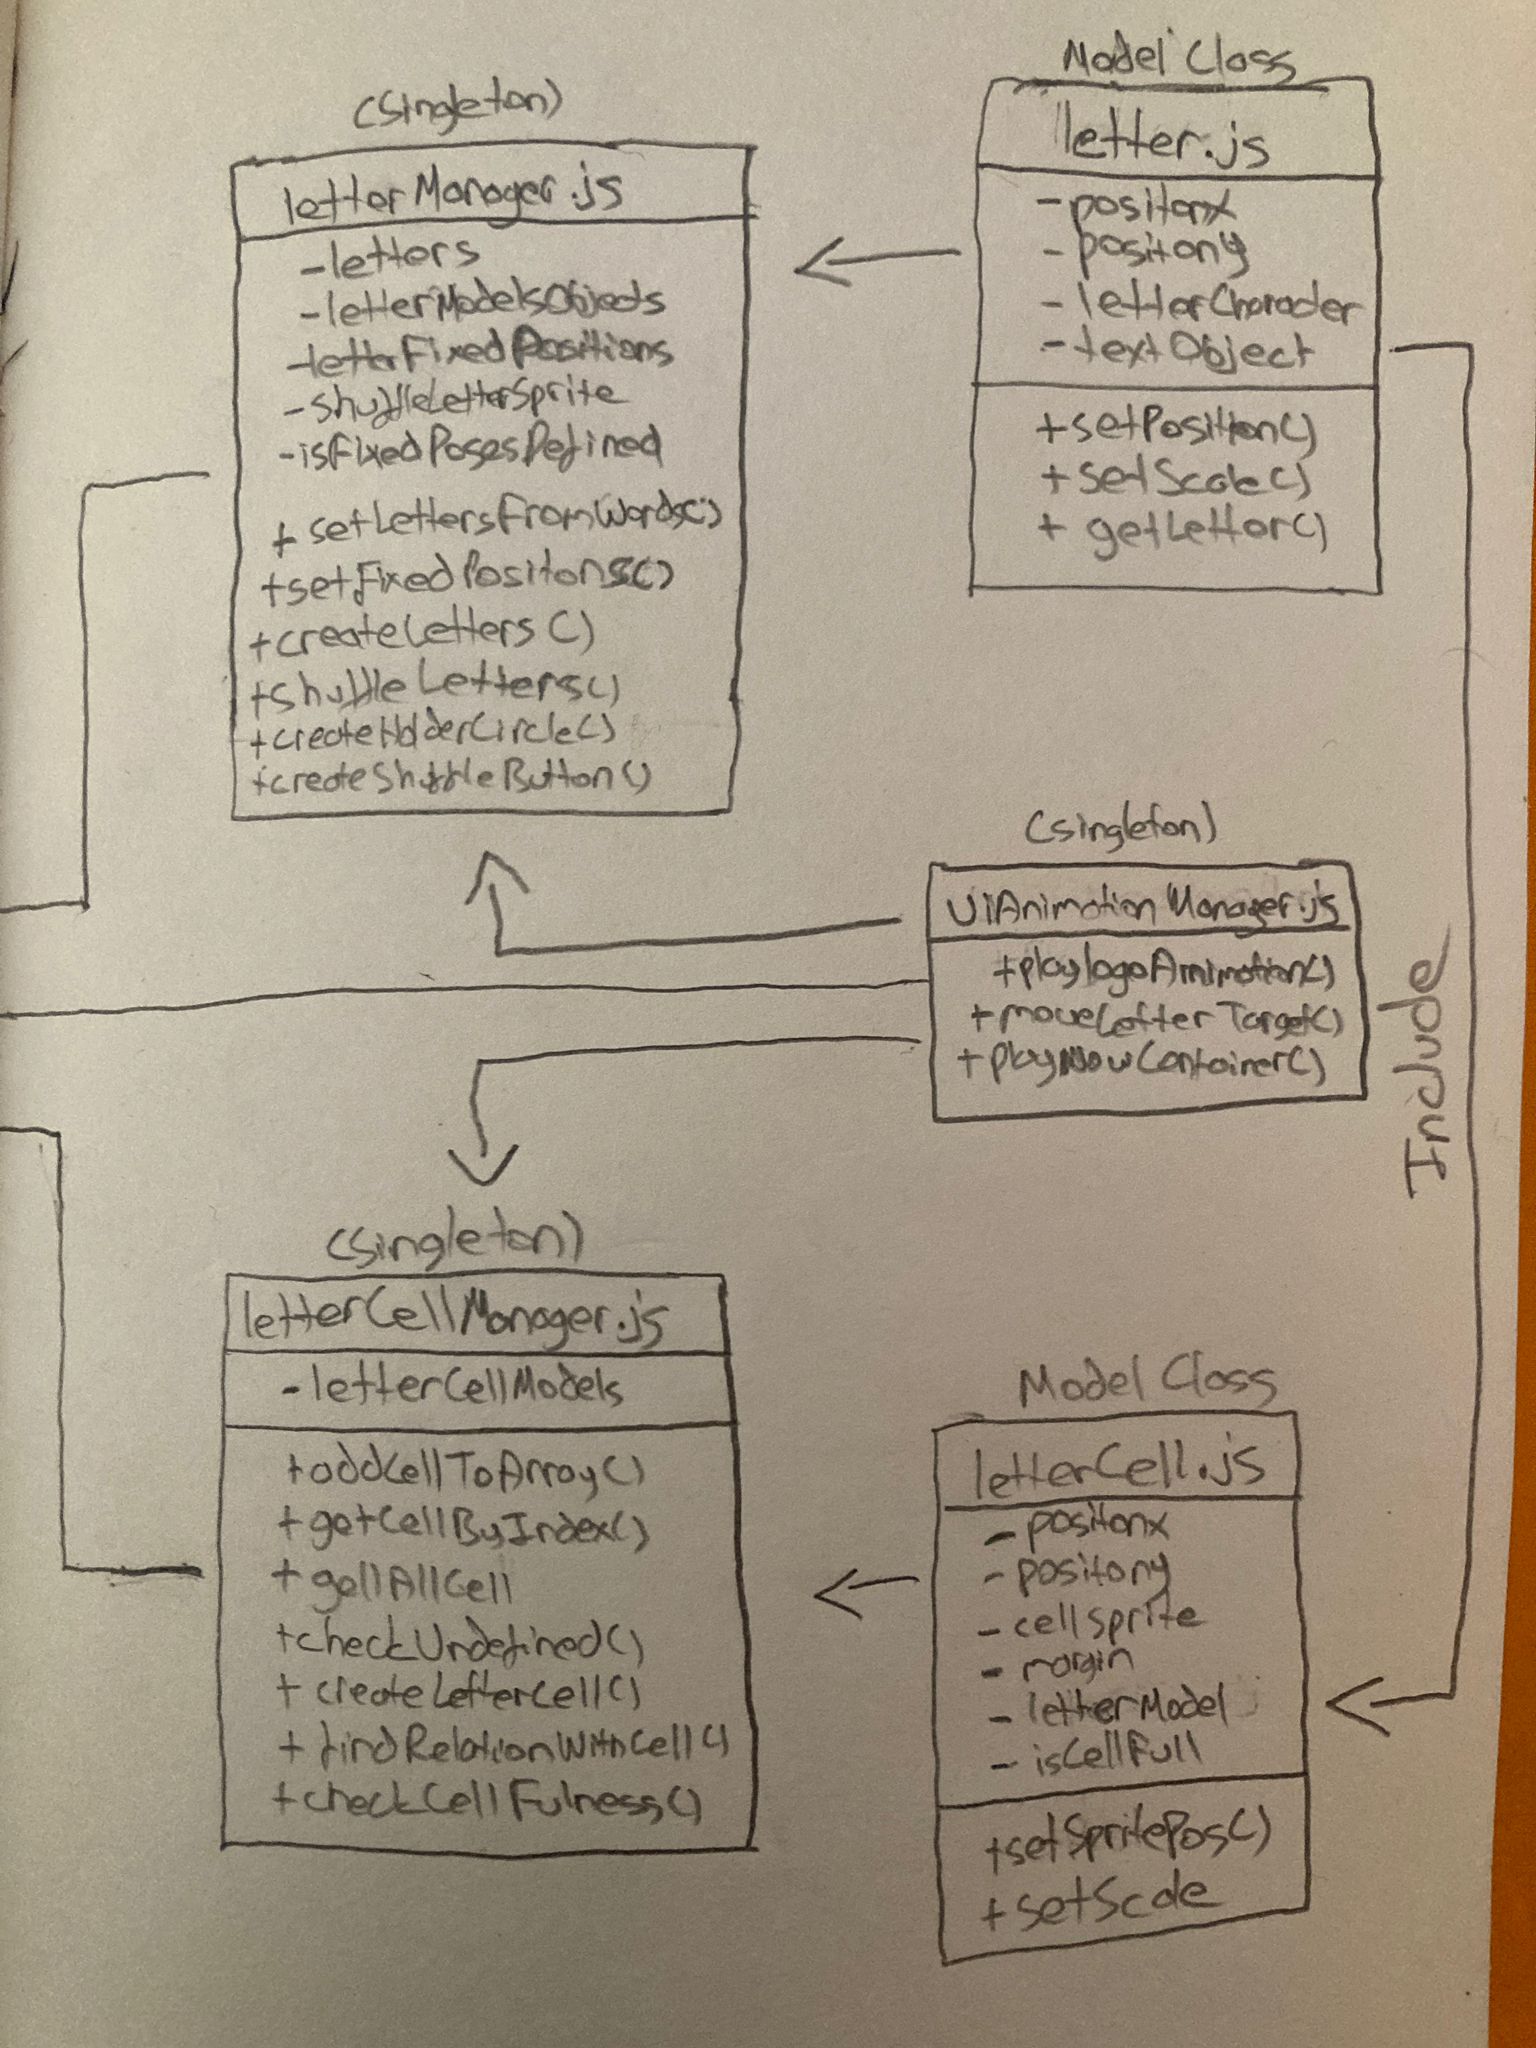 (Singleton)
letterManager.js
-letters
-letterModelsObjects
-letterFixedPositions
-shuffleLetterSprite
-isFixedPosesDefined
+ setLettersFromWords()
+setFixedPositons()
+createLetters()
+shuffleLetters()
+createHolderCircle()
+createShuffleButton()
Model Class
letter.js
- positonx
- positony
- letterCharacter
- textObject
+setPosition()
+setScale()
+ getLetter()
(singleton)
uiAnimationManager.js
+playlogoAnimation()
+moveLetterTarget()
+playNowContainer()
Include
(singleton)
letterCellManager.js
- letterCellModels
+addCellToArray()
+getCellByIndex()
+ getAllCell
+checkUndefined()
+ createLetterCell()
+ findRelationWithCell()
+checkCellFulness()
Model Class
letterCell.js
- positonx
- positony
- cellSprite
- margin
- letterModel
- isCellFull
+setSpritePos()
+ setScale